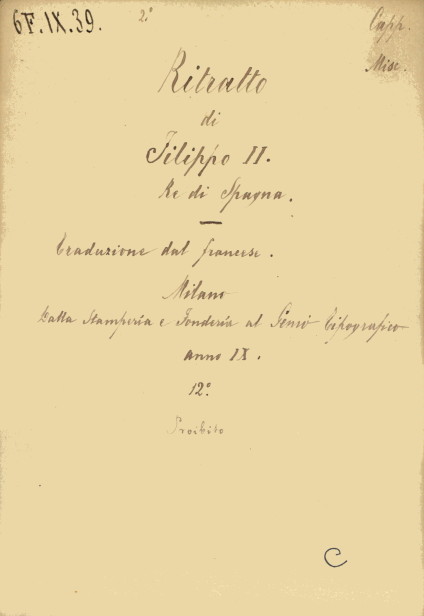 6F.IX.39.
2.°
Capp.
Misc.
Ritratto
di
Filippo II.
Re di Spagna.
Traduzione dal francese.
Milano
Dalla Stamperia e Fonderia al Genio Tipografico
anno IX.
12°.
Proibito
C